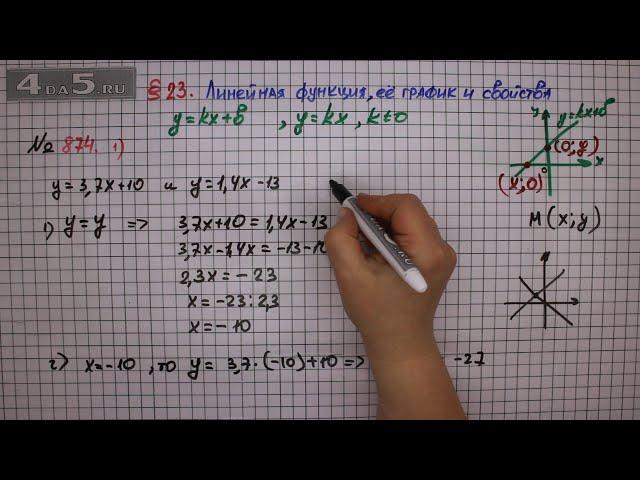 4DA5.RU
§ 23. Линейная функция, её график и свойства
y=kx+b , y=kx , k≠0
№ 874. 1)
y=3,7x+10 и y=1,4x-13
1) y=y => 3,7x+10=1,4x-13
3,7x-1,4x=-13-10
2,3x=-23
x=-23:2,3
x=-10
2) x=-10, то y= 3,7·(-10)+10 => -27
y
y=kx+b
(0;y)
x
(x;0)
0
M(x;y)